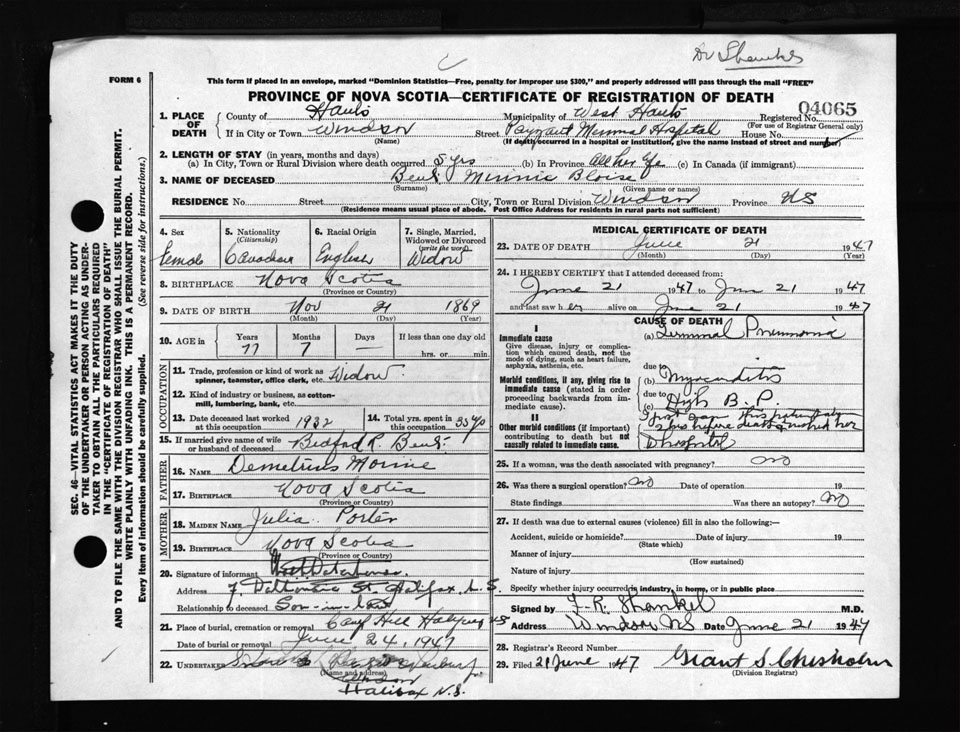 Dr Shankel
FORM 6
This form if placed in an envelope, marked "Dominion Statistics—Free, penalty for improper use $300," and properly addressed will pass through the mail "FREE"
PROVINCE OF NOVA SCOTIA—CERTIFICATE OF REGISTRATION OF DEATH
04065
1. PLACE OF DEATH
County of Hants Municipality of West Hants Registered No.
(For use of Registrar General only)
If in City or Town Windsor Street Payzant Memorial Hospital House No.
(Name) (If death occurred in a hospital or institution, give the name instead of street and number)
2. LENGTH OF STAY (in years, months and days)
(a) In City, Town or Rural Division where death occurred 5 yrs (b) In Province all her life (c) In Canada (if immigrant)
3. NAME OF DECEASED Minnie
(Surname) (Given name or names)
RESIDENCE No. Street City, Town or Rural Division Windsor Province NS
(Residence means usual place of abode. Post Office Address for residents in rural parts not sufficient)
4. Sex
Female
5. Nationality
(Citizenship)
Canadian
6. Racial Origin
English
7. Single, Married, Widowed or Divorced
(write the word)
Widow
8. BIRTHPLACE Nova Scotia
(Province or Country)
9. DATE OF BIRTH Nov 21 1869
(Month) (Day) (Year)
10. AGE in
Years Months Days If less than one day old
77 7 — hrs. or min.
OCCUPATION
11. Trade, profession or kind of work as spinner, teamster, office clerk, etc. Widow
12. Kind of industry or business, as cotton-mill, lumbering, bank, etc.
13. Date deceased last worked at this occupation 1932
14. Total yrs. spent in this occupation 35 yrs
15. If married give name of wife or husband of deceased Bedford R.
FATHER
16. NAME Demetrius
17. BIRTHPLACE Nova Scotia
(Province or Country)
MOTHER
18. MAIDEN NAME Julia Porter
19. BIRTHPLACE Nova Scotia
(Province or Country)
20. Signature of informant
Address 7. St. Halifax N.S.
Relationship to deceased Son-in-law
21. Place of burial, cremation or removal Camp Hill Halifax NS
Date of burial or removal June 24, 1947
22. UNDERTAKER
(Name and address)
Halifax N.S.
MEDICAL CERTIFICATE OF DEATH
23. DATE OF DEATH June 21 1947
(Month) (Day) (Year)
24. I HEREBY CERTIFY that I attended deceased from:
June 21 1947 to June 21 1947
and last saw her alive on June 21 1947
CAUSE OF DEATH
I
Immediate cause
Give disease, injury or complication which caused death, not the mode of dying, such as heart failure, asphyxia, asthenia, etc.
(a) Terminal Pneumonia
due to
Morbid conditions, if any, giving rise to immediate cause (stated in order proceeding backwards from immediate cause).
(b) Myocarditis
due to
(c) High B.P.
II
Other morbid conditions (if important) contributing to death but not causally related to immediate cause.
I first saw this patient only
before death & moved her
to hospital
25. If a woman, was the death associated with pregnancy? no
26. Was there a surgical operation? no Date of operation 19
State findings Was there an autopsy? no
27. If death was due to external causes (violence) fill in also the following:—
Accident, suicide or homicide? Date of injury 19
(State which)
Manner of injury
(How sustained)
Nature of injury
Specify whether injury occurred in industry, in home, or in public place
Signed by F. R. Shankel M.D.
Address Windsor NS Date June 21 1947
28. Registrar's Record Number
29. Filed 21 June 1947 Grant S Chisholm
(Division Registrar)
SEC. 46—VITAL STATISTICS ACT MAKES IT THE DUTY
OF THE UNDERTAKER OR PERSON ACTING AS UNDER-
TAKER TO OBTAIN ALL THE PARTICULARS REQUIRED
IN THE "CERTIFICATE OF REGISTRATION OF DEATH"
AND TO FILE THE SAME WITH THE DIVISION REGISTRAR WHO SHALL ISSUE THE BURIAL PERMIT.
WRITE PLAINLY WITH UNFADING INK. THIS IS A PERMANENT RECORD.
Every item of information should be carefully supplied. (See reverse side for instructions.)